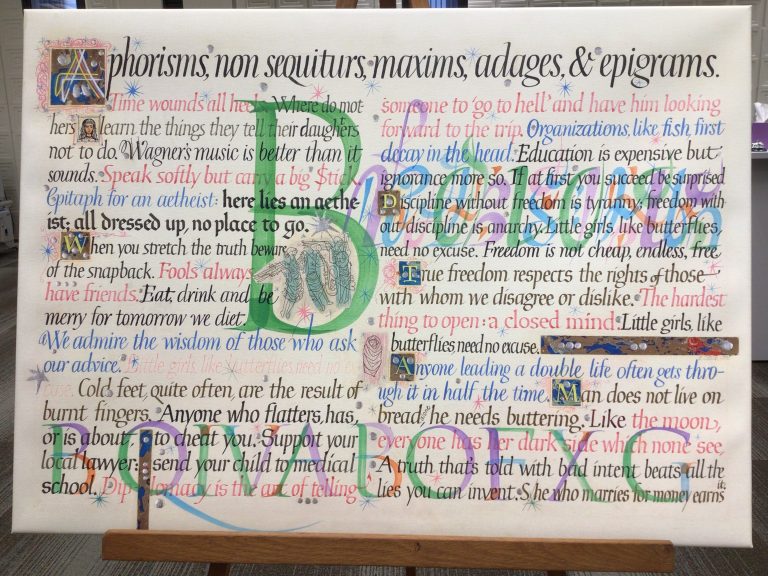 Aphorisms, non sequiturs, maxims, adages, & epigrams.
Time wounds all heels. Where do mot
hers learn the things they tell their daughters
not to do. Wagner's music is better than it
sounds. Speak softly but carry a big $tick.
Epitaph for an aetheist: here lies an aethe-
ist; all dressed up, no place to go.
When you stretch the truth beware
of the snapback. Fools always
have friends. Eat, drink and be
merry for tomorrow we diet.
We admire the wisdom of those who ask
our advice. Little girls, like butterflies need no ex-
cuse. Cold feet, quite often, are the result of
burnt fingers. Anyone who flatters, has,
or is about, to cheat you. Support your
local lawyer: send your child to medical
school. Diplomacy is the art of telling
someone to 'go to hell' and have him looking
forward to the trip. Organizations, like fish, first
decay in the head. Education is expensive but
ignorance more so. If at first you succeed be surprised
Discipline without freedom is tyranny; freedom with
out discipline is anarchy. Little girls, like butterflies,
need no excuse. Freedom is not cheap, endless, free
True freedom respects the rights of those
with whom we disagree or dislike. The hardest
thing to open: a closed mind. Little girls, like
butterflies need no excuse.
Anyone leading a double life often gets thro-
ugh it in half the time. Man does not live on
bread he needs buttering. Like the moon,
everyone has her dark side which none see.
A truth that's told with bad intent beats all the
lies you can invent. S/he who marries for money earns
it.
B
BQIVABOFXG